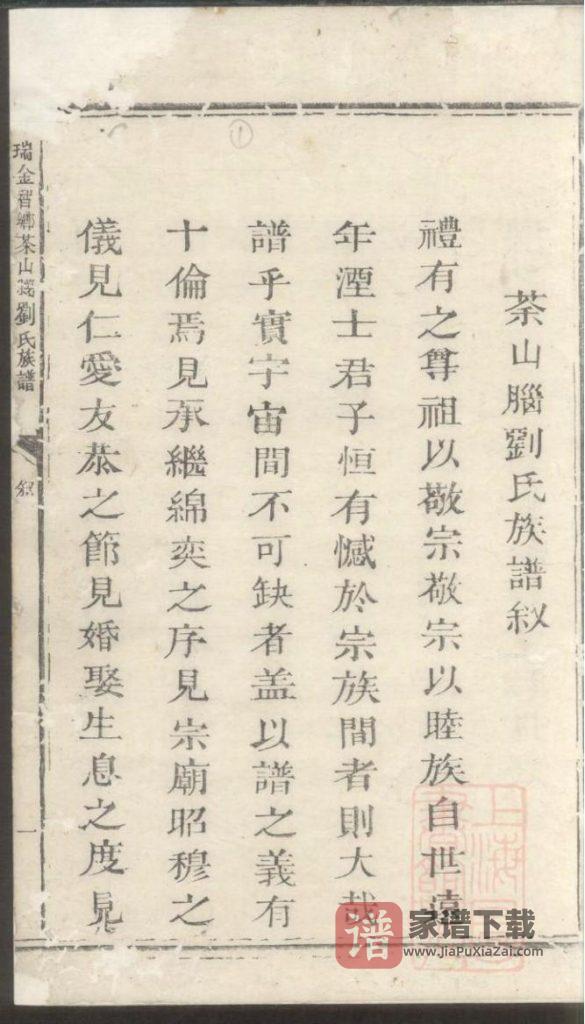 茶山腦劉氏族譜叙
禮有之尊祖以敬宗敬宗以睦族自世遠
年湮士君子恒有憾於宗族間者則大哉
譜乎實宇宙間不可缺者盖以譜之義有
十倫焉見承繼綿奕之序見宗廟昭穆之
儀見仁愛友恭之節見婚娶生息之度見
瑞金智鄉茶山劉氏族譜
叙
一
①
上海
谱
家谱下载
www.JiaPuXiaZai.com